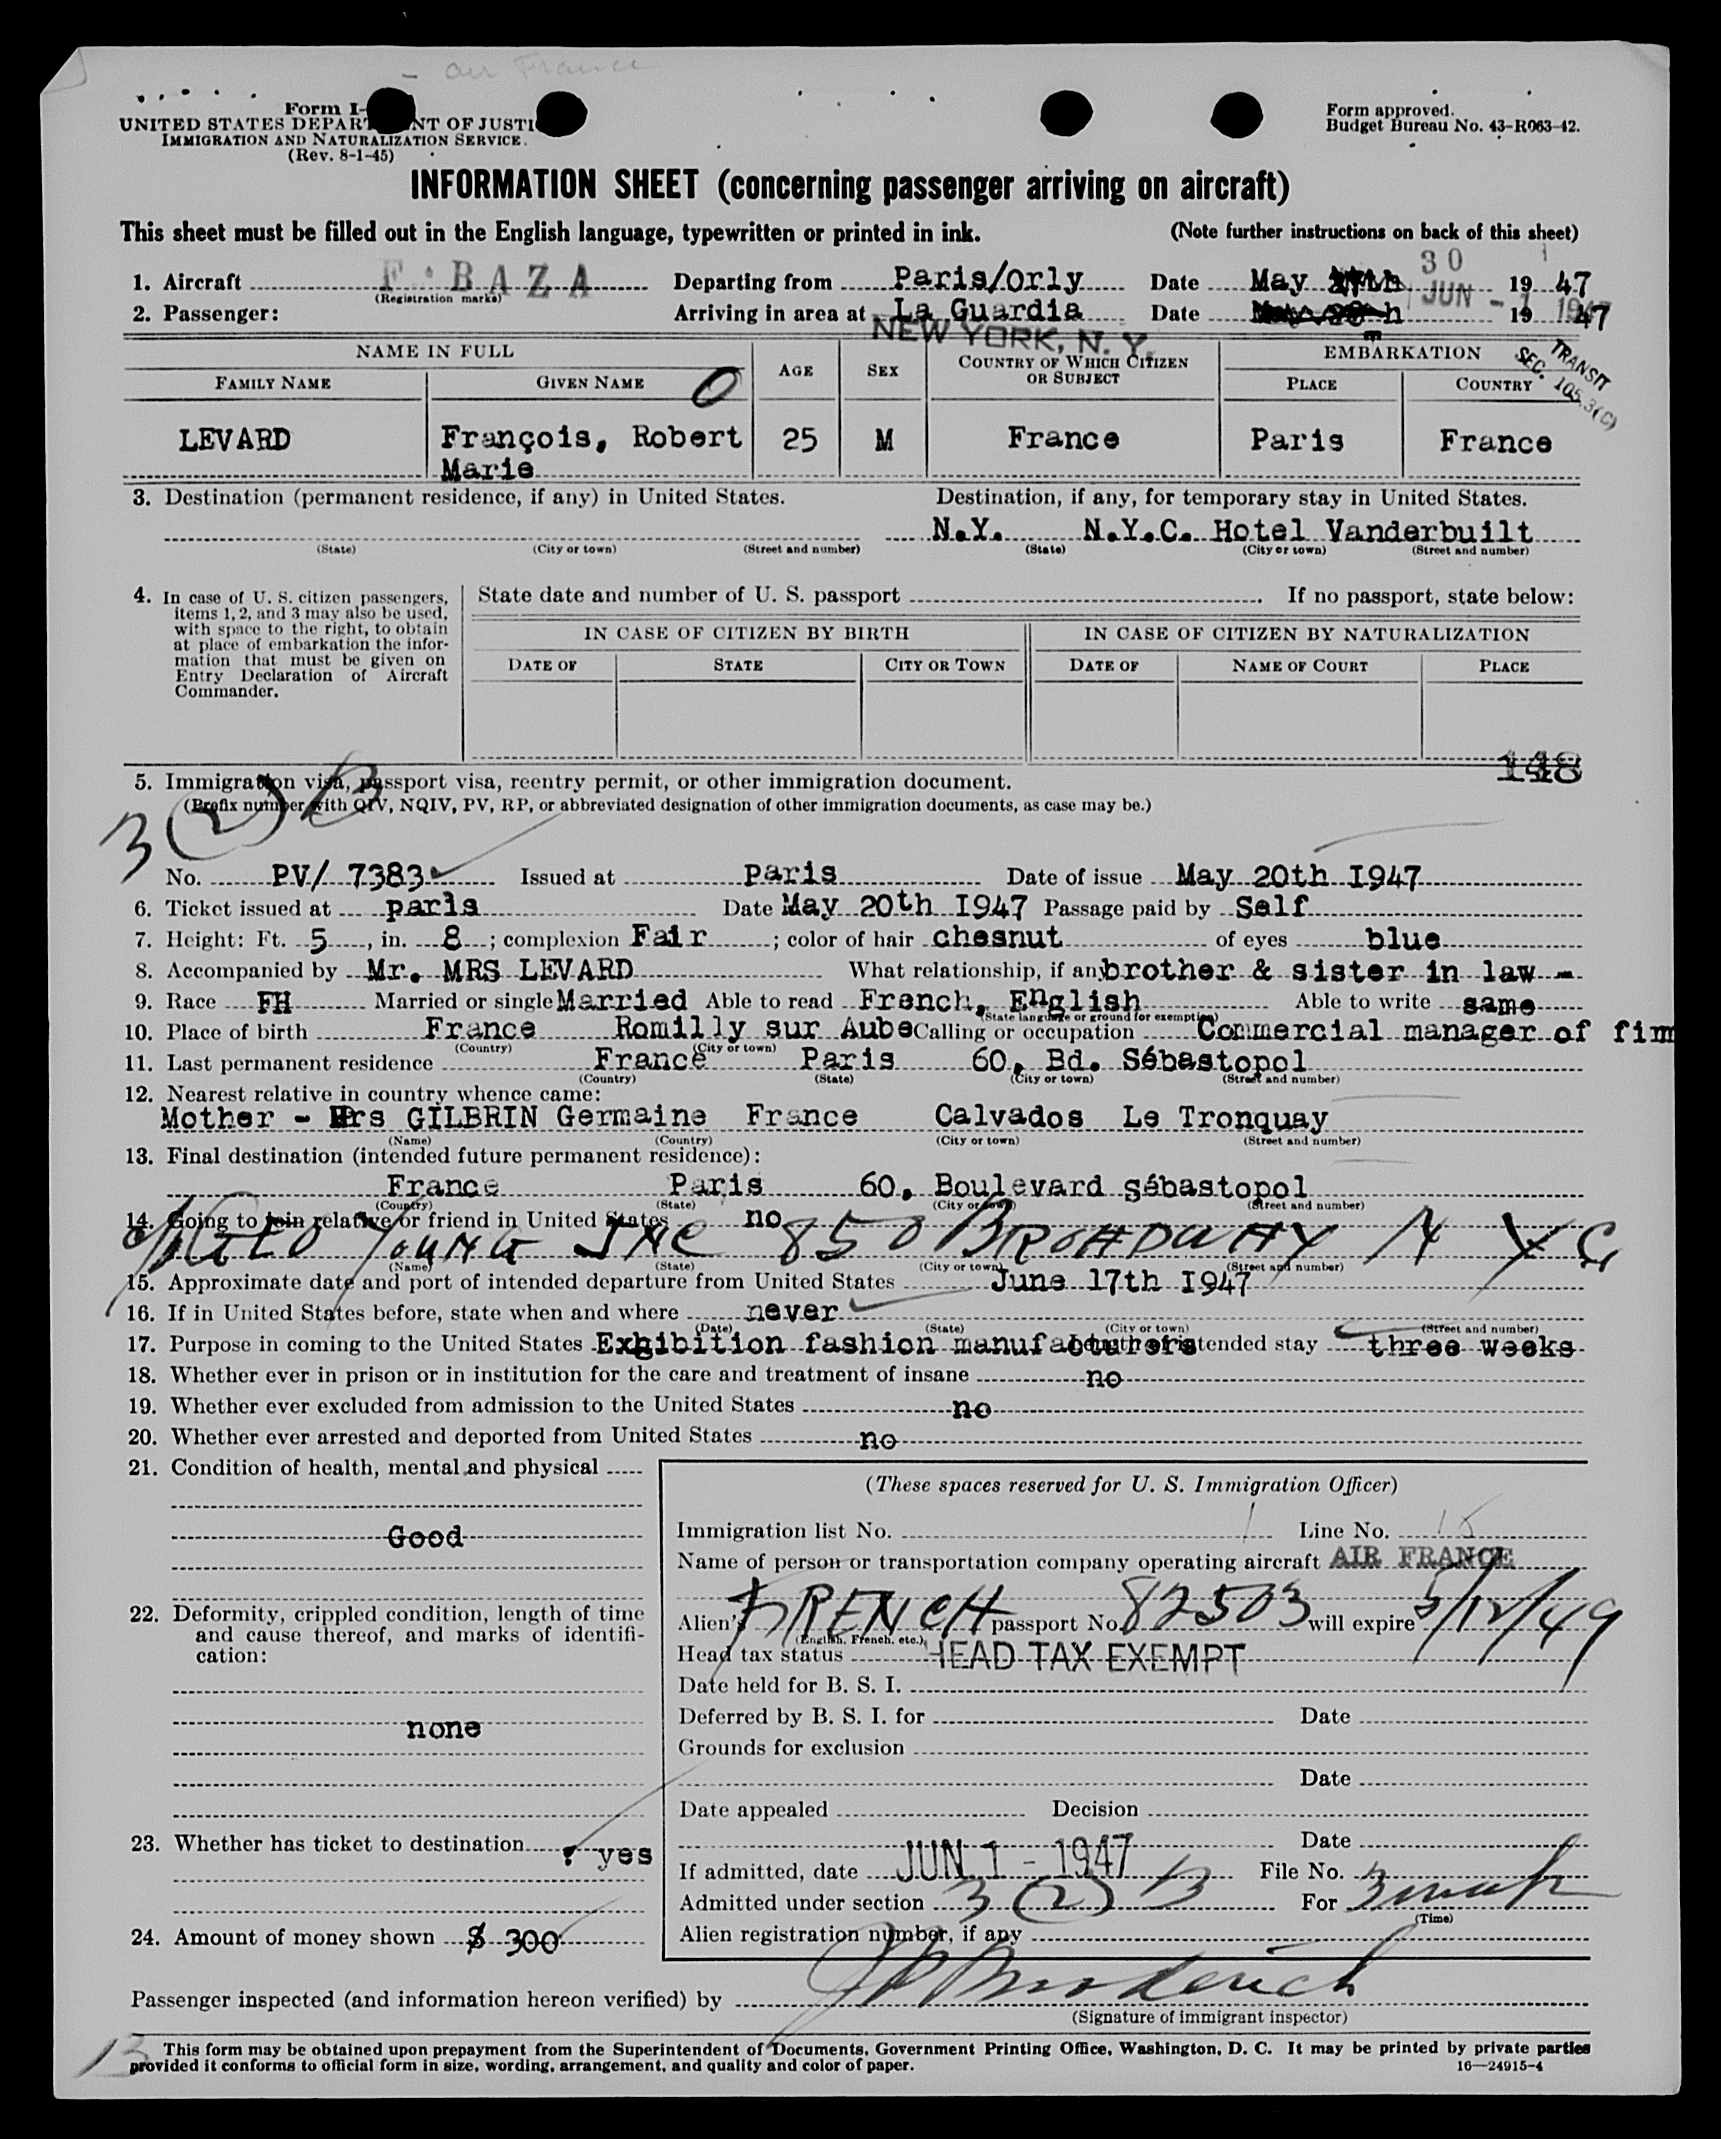 air France
Form I-
UNITED STATES DEPARTMENT OF JUSTI
IMMIGRATION AND NATURALIZATION SERVICE
(Rev. 8-1-45)
Form approved.
Budget Bureau No. 43-R063-42.
INFORMATION SHEET (concerning passenger arriving on aircraft)
This sheet must be filled out in the English language, typewritten or printed in ink. (Note further instructions on back of this sheet)
1. Aircraft F·BAZA (Registration marks) Departing from Paris/Orly Date May 30 1947
2. Passenger: Arriving in area at La Guardia Date JUN - 1 1947 1947
NEW YORK, N. Y.
TRANSIT
SEC. 105.3(C)
NAME IN FULL AGE SEX COUNTRY OF WHICH CITIZEN OR SUBJECT EMBARKATION
FAMILY NAME GIVEN NAME PLACE COUNTRY
LEVARD François, Robert 25 M France Paris France
Marie
3. Destination (permanent residence, if any) in United States. Destination, if any, for temporary stay in United States.
N.Y. N.Y.C. Hotel Vanderbuilt
(State) (City or town) (Street and number) (State) (City or town) (Street and number)
4. In case of U. S. citizen passengers, items 1, 2, and 3 may also be used, with space to the right, to obtain at place of embarkation the information that must be given on Entry Declaration of Aircraft Commander.
State date and number of U. S. passport If no passport, state below:
IN CASE OF CITIZEN BY BIRTH IN CASE OF CITIZEN BY NATURALIZATION
DATE OF STATE CITY OR TOWN DATE OF NAME OF COURT PLACE
148
5. Immigration visa, passport visa, reentry permit, or other immigration document.
(Prefix number with QIV, NQIV, PV, RP, or abbreviated designation of other immigration documents, as case may be.)
3 (2) B
No. PV/ 7383 Issued at Paris Date of issue May 20th I947
6. Ticket issued at paris Date May 20th I947 Passage paid by Self
7. Height: Ft. 5, in. 8; complexion Fair; color of hair chesnut of eyes blue
8. Accompanied by Mr. MRS LEVARD What relationship, if any brother & sister in law -
9. Race FH Married or single Married Able to read French, English Able to write same
(State language or ground for exemption)
10. Place of birth France Romilly sur Aube Calling or occupation Commercial manager of firm
(Country) (City or town)
11. Last permanent residence France Paris 60, Bd. Sébastopol
(Country) (State) (City or town) (Street and number)
12. Nearest relative in country whence came:
Mother - Mrs GILBRIN Germaine France Calvados Le Tronquay
(Name) (Country) (City or town) (Street and number)
13. Final destination (intended future permanent residence):
France Paris 60, Boulevard sébastopol
(Country) (State) (City or town) (Street and number)
14. Going to join relative or friend in United States no
c/o GEO YOUNG INC 850 BROADWAY N Y C
(Name) (State) (City or town) (Street and number)
15. Approximate date and port of intended departure from United States June 17th I947
16. If in United States before, state when and where never
(Date) (State) (City or town) (Street and number)
17. Purpose in coming to the United States Exhibition fashion manufacturers Length of intended stay three weeks
18. Whether ever in prison or in institution for the care and treatment of insane no
19. Whether ever excluded from admission to the United States no
20. Whether ever arrested and deported from United States no
21. Condition of health, mental and physical
Good
22. Deformity, crippled condition, length of time and cause thereof, and marks of identification:
none
23. Whether has ticket to destination yes
24. Amount of money shown $ 300
(These spaces reserved for U. S. Immigration Officer)
Immigration list No. 1 Line No. 15
Name of person or transportation company operating aircraft AIR FRANCE
Alien's FRENCH passport No. 82503 will expire 5/12/49
(English, French, etc.)
Head tax status HEAD TAX EXEMPT
Date held for B. S. I.
Deferred by B. S. I. for Date
Grounds for exclusion
Date
Date appealed Decision
Date
If admitted, date JUN 1 - 1947 File No.
Admitted under section 3 (2) B For 3
(Time)
Alien registration number, if any
Passenger inspected (and information hereon verified) by
(Signature of immigrant inspector)
13
This form may be obtained upon prepayment from the Superintendent of Documents, Government Printing Office, Washington, D. C. It may be printed by private parties
provided it conforms to official form in size, wording, arrangement, and quality and color of paper. 16—24915-4